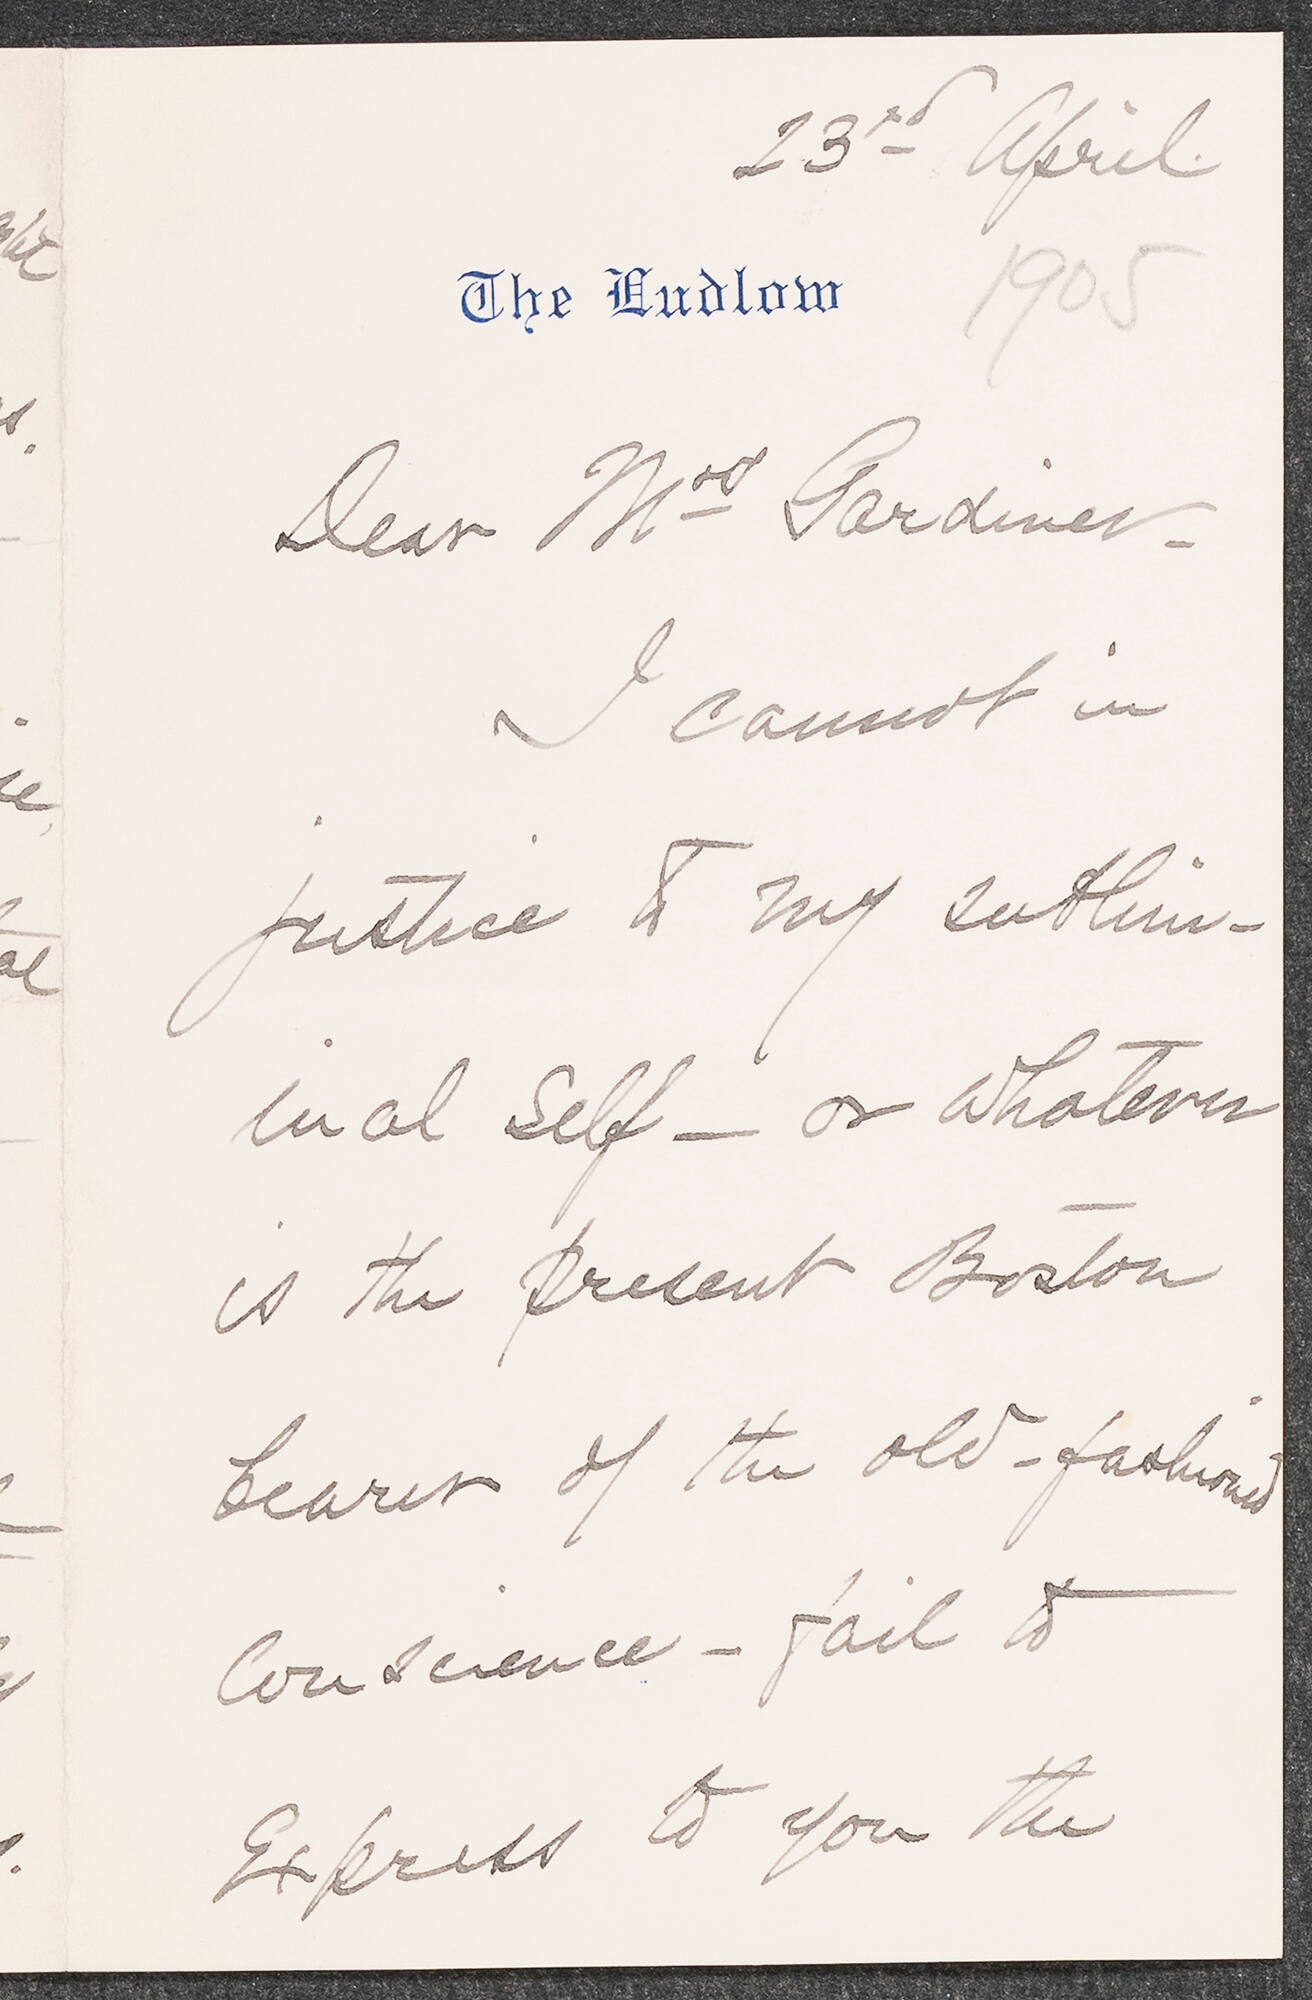 23rd April.
The Ludlow
1905
Dear Mrs Gardiner_
I cannot in
justice to my sublim-
inal self _ or whatever
is the present Boston
bearer of the old-fashioned
Conscience _ fail to
Express to you the